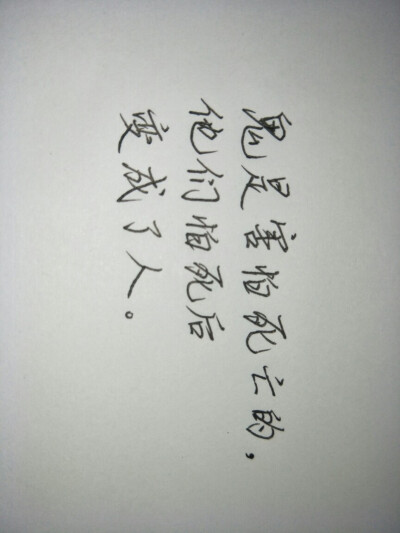 鬼是害怕死亡的，
他们怕死后
变成了人。